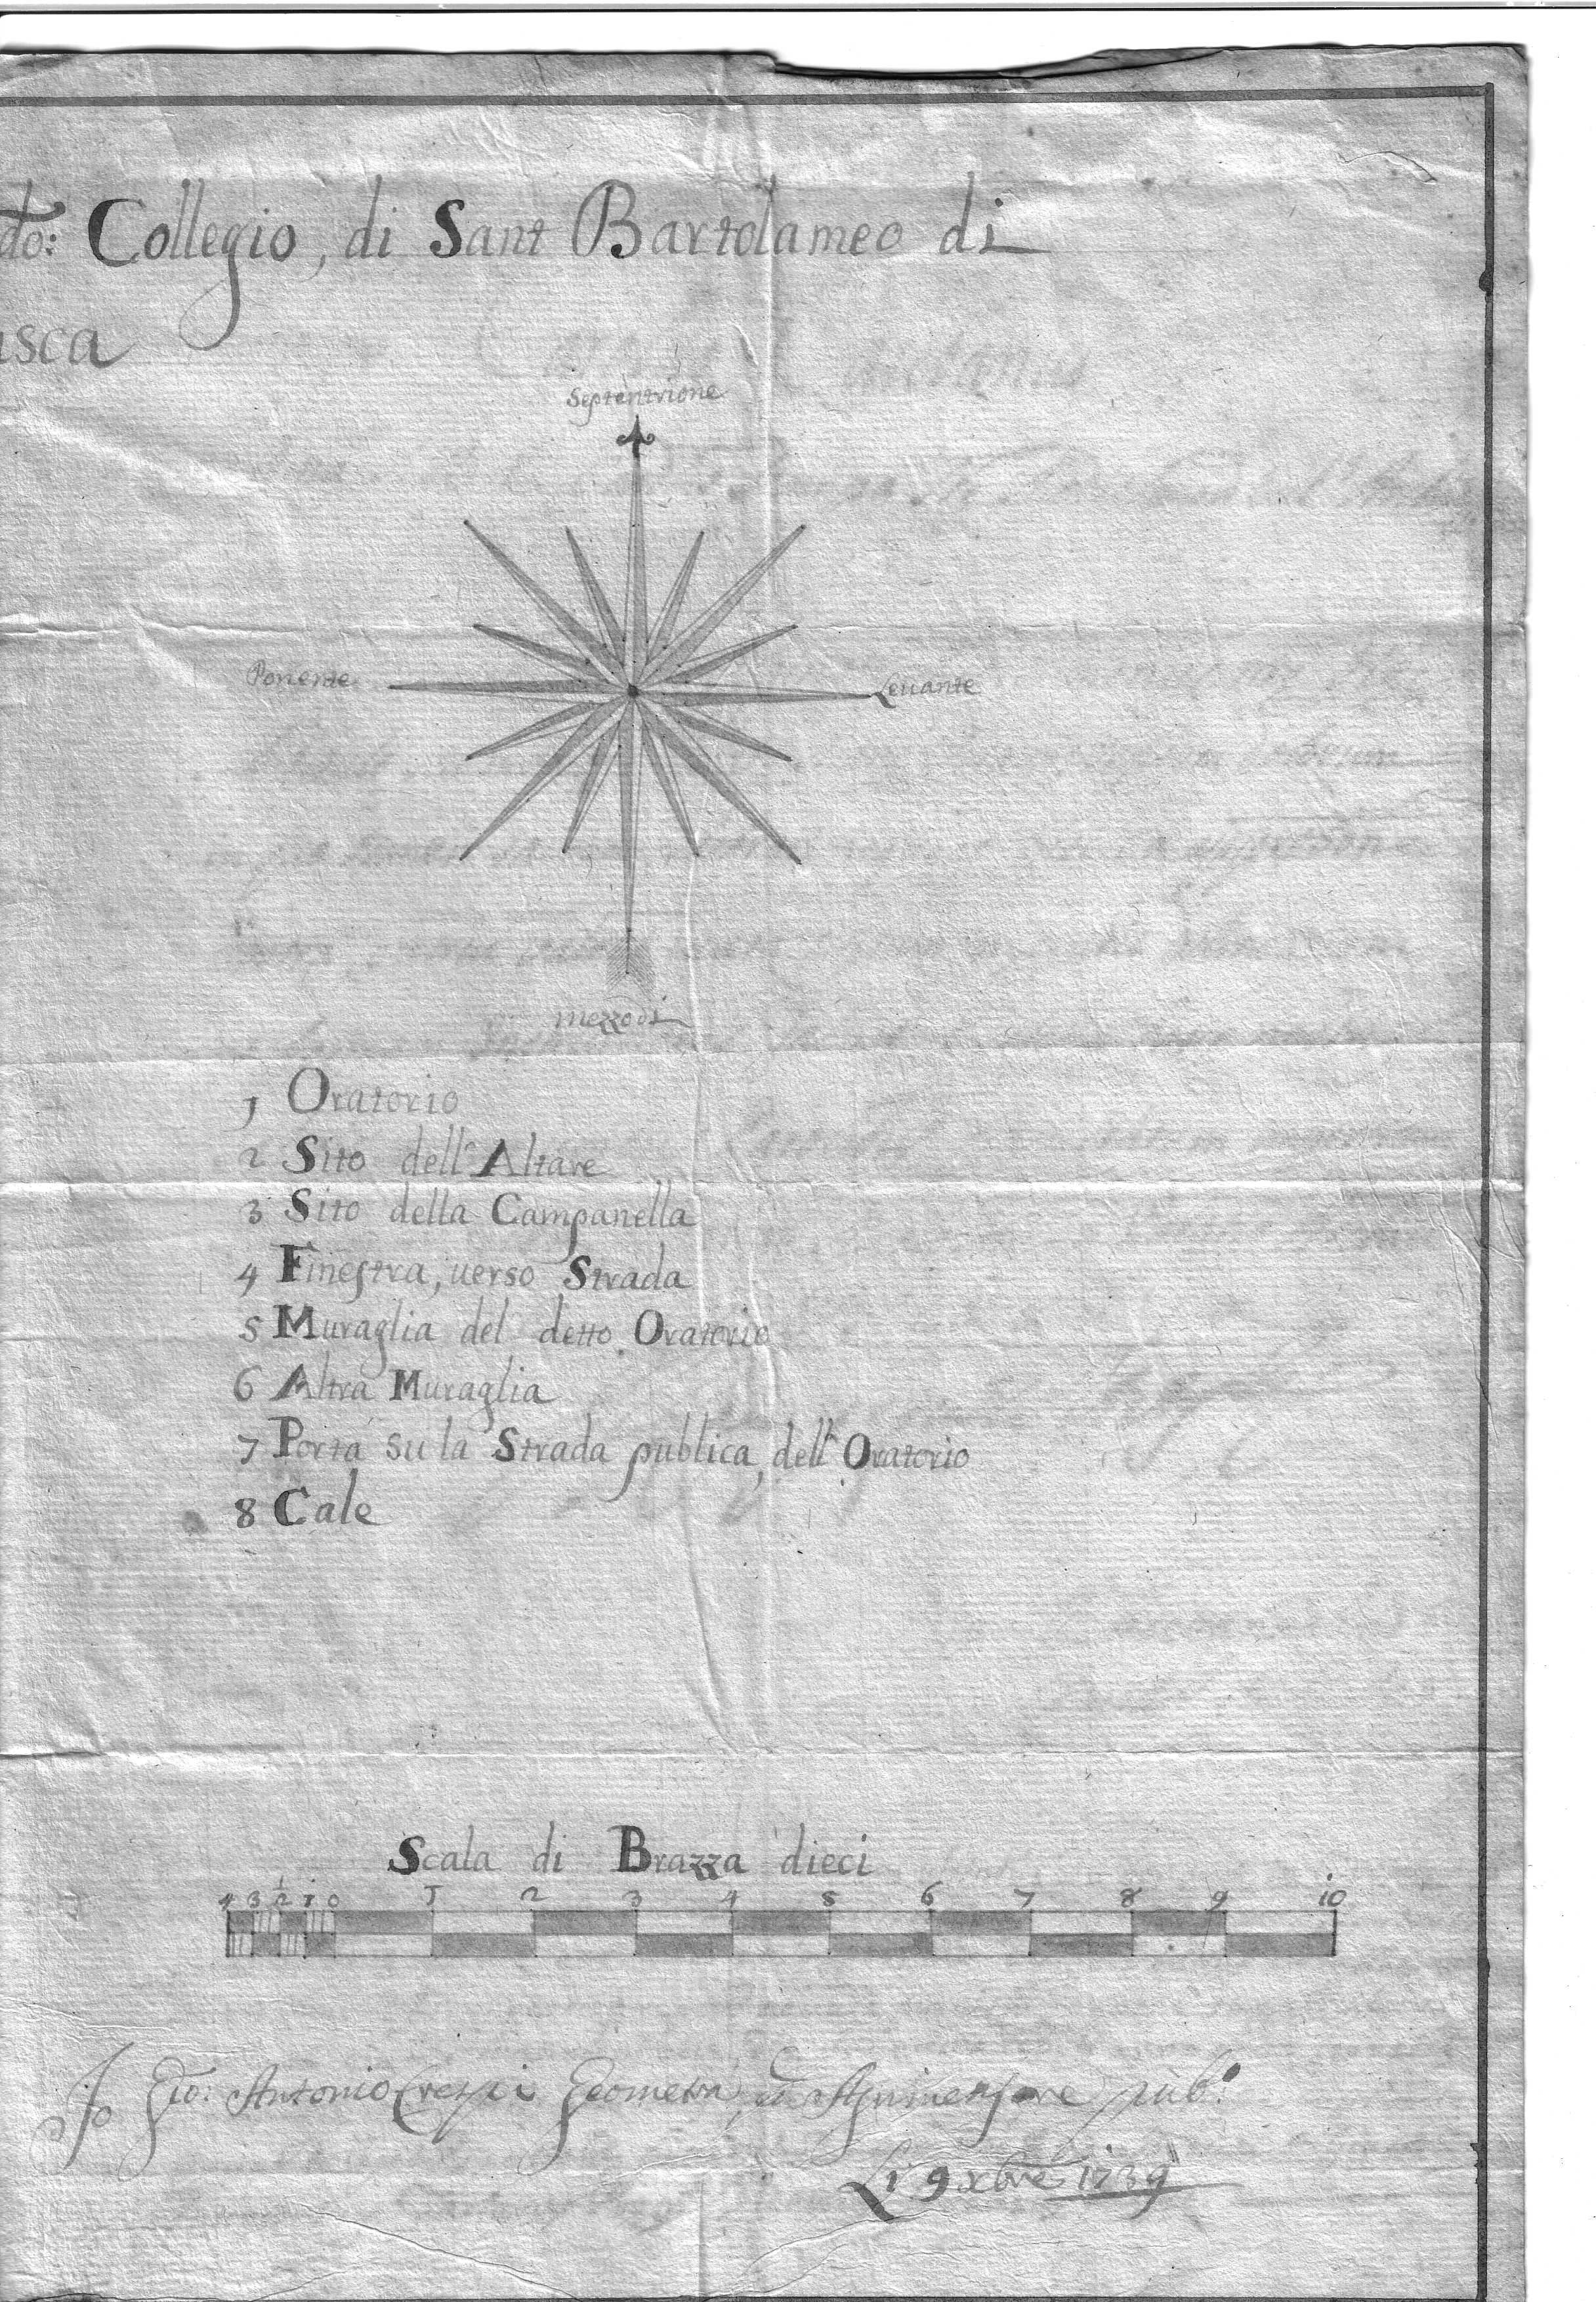 do: Collegio, di Sant Bartolameo di
asca
Septentrione
Ponente
Leuante
mezzodi
1 Oratorio
2 Sito dell' Altare
3 Sito della Campanella
4 Finestra, uerso Strada
5 Muraglia del detto Oratorio
6 Altra Muraglia
7 Porta su la Strada publica, dell' Oratorio
8 Cale
Scala di Brazza dieci
4 3 2 1 0 1 2 3 4 5 6 7 8 9 10
Io Gio: Antonio Crespi Geometra, ed Agrimensore pub.o
Li 9 xbre 1739